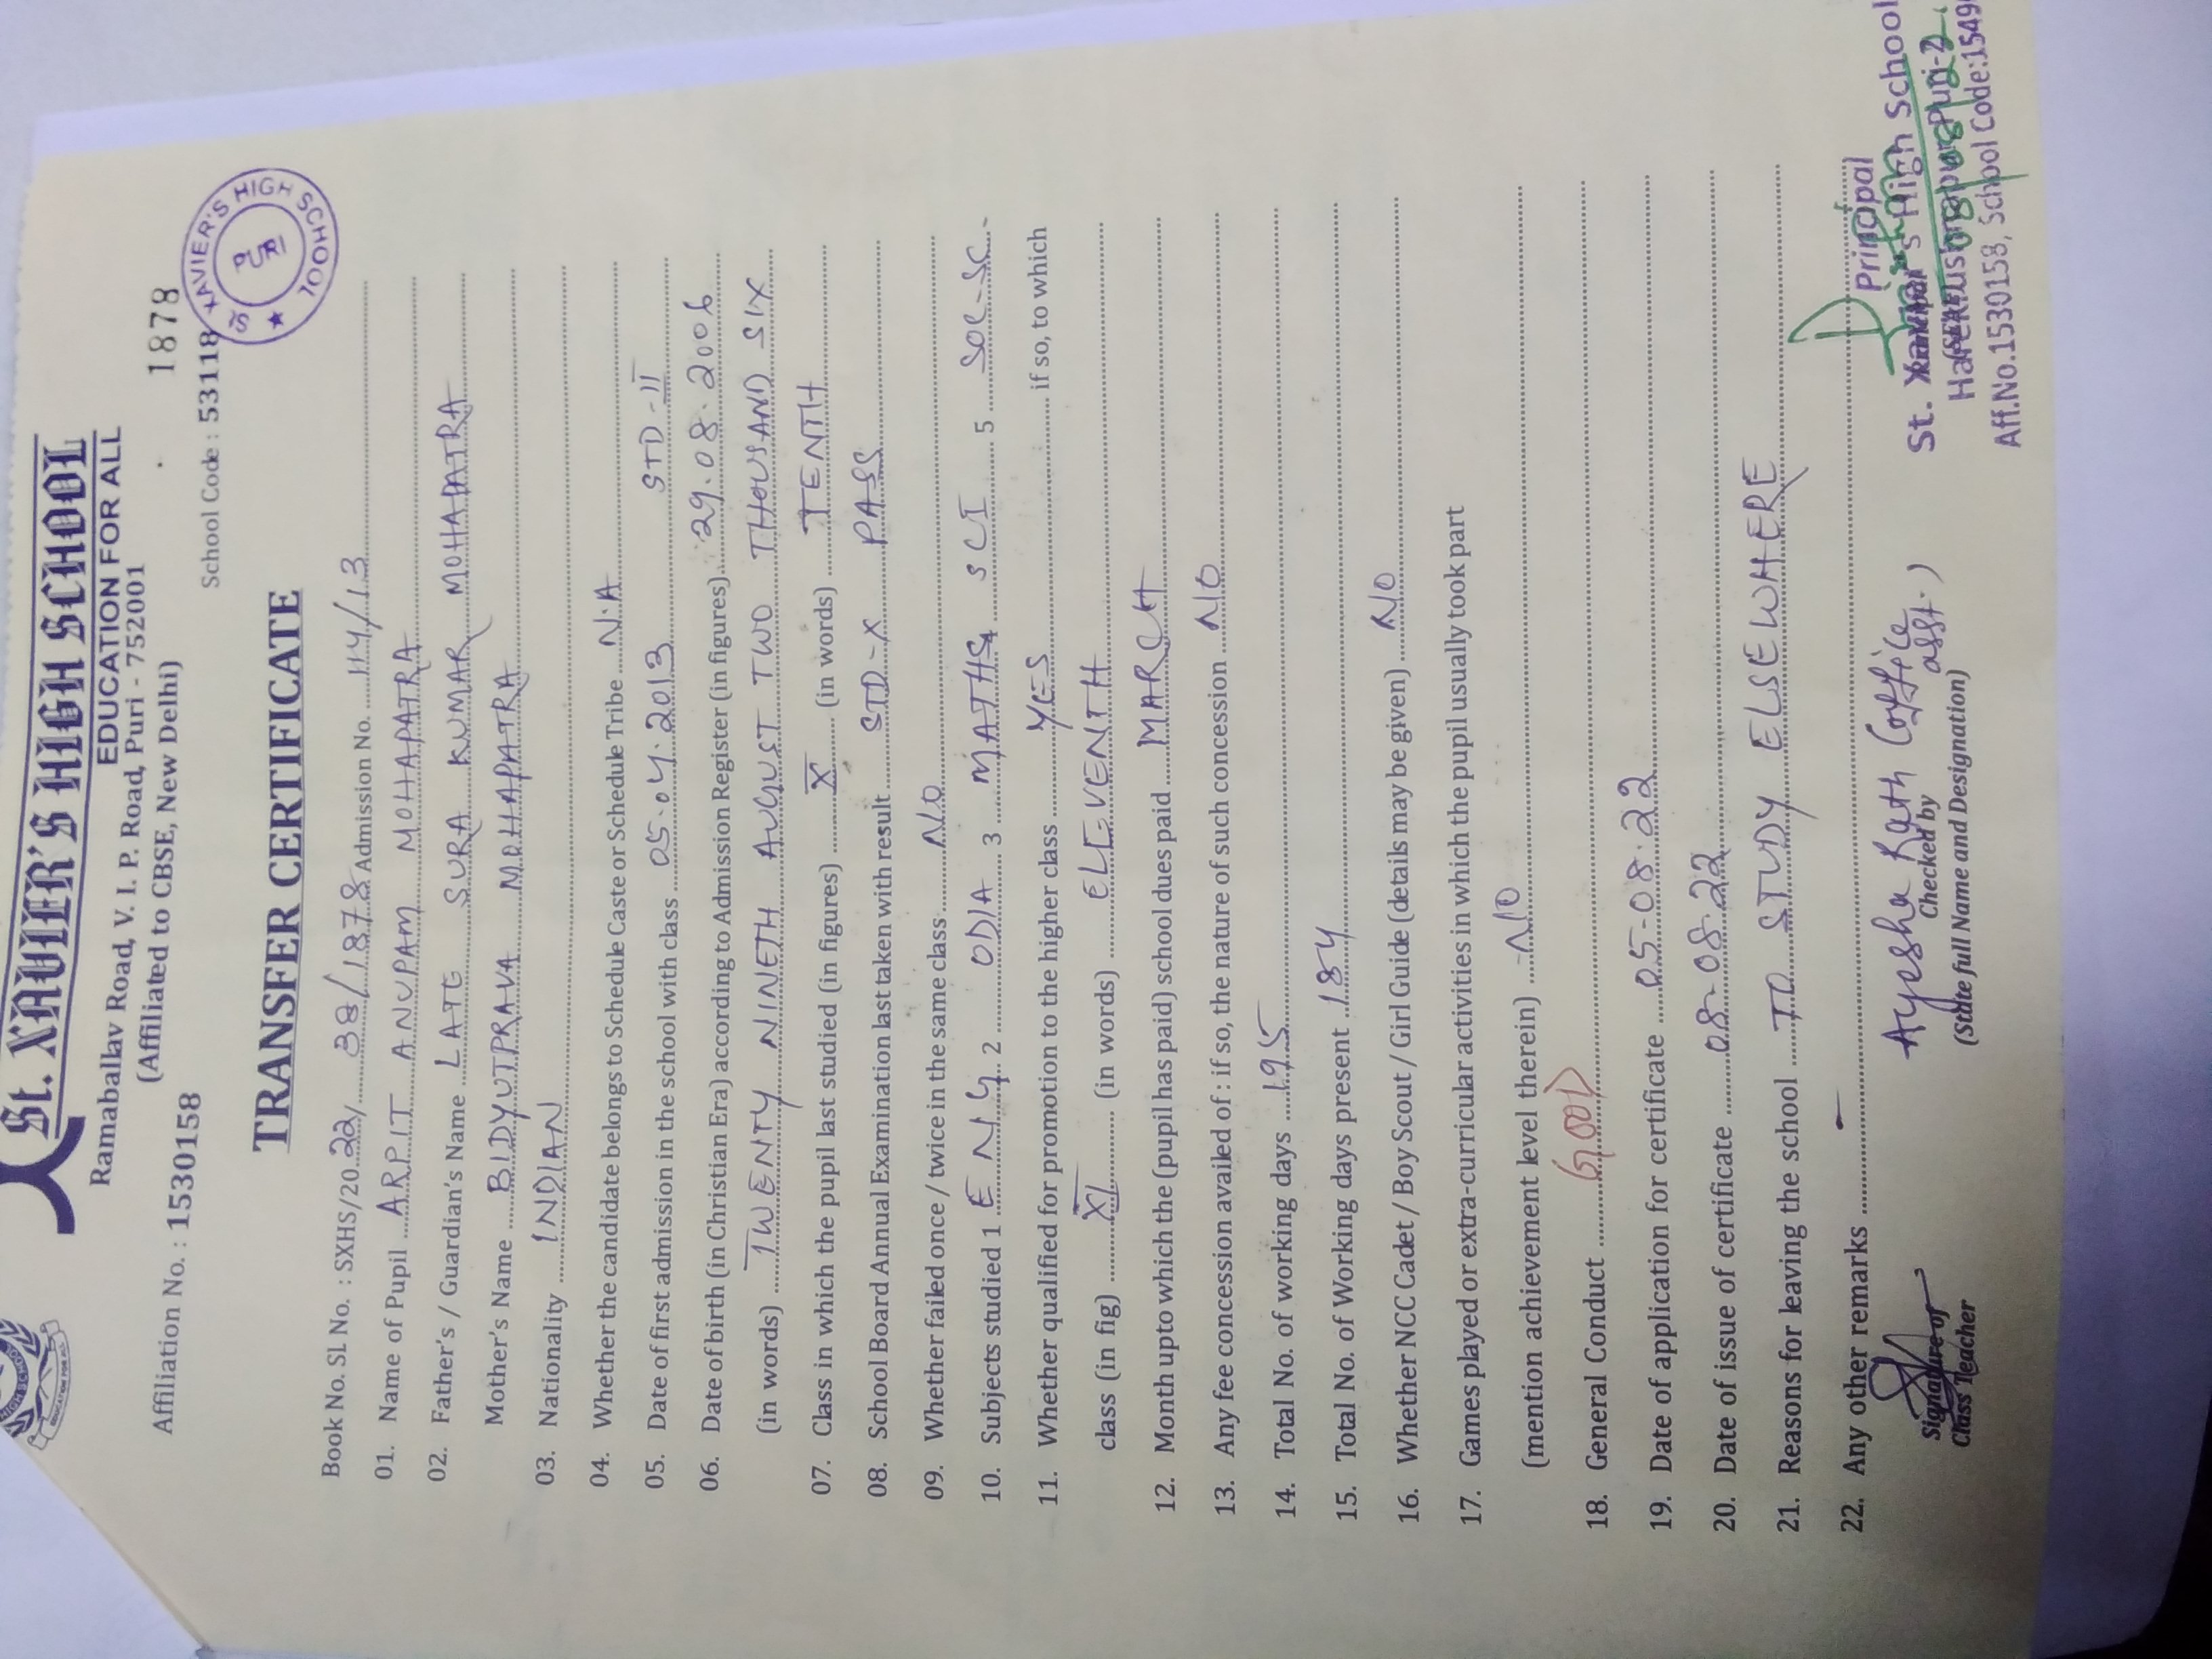 St. XAVIER'S HIGH SCHOOL
EDUCATION FOR ALL
Ramaballav Road, V. I. P. Road, Puri - 752001
(Affiliated to CBSE, New Delhi)
Affiliation No. : 1530158
1878
School Code : 53118
St. XAVIER'S HIGH SCHOOL
PURI
TRANSFER CERTIFICATE
Book No. SL No. : SXHS/2022/ 38/1878 Admission No. 114/13
01. Name of Pupil ARPIT ANUPAM MOHAPATRA
02. Father's / Guardian's Name LATE SURA KUMAR MOHAPATRA
Mother's Name BIDYUTPRAVA MOHAPATRA
03. Nationality INDIAN
04. Whether the candidate belongs to Schedule Caste or Schedule Tribe N.A
05. Date of first admission in the school with class 05.04.2013 STD-II
06. Date of birth (in Christian Era) according to Admission Register (in figures) 29.08.2006
(in words) TWENTY NINETH AUGUST TWO THOUSAND SIX
07. Class in which the pupil last studied (in figures) X (in words) TENTH
08. School Board Annual Examination last taken with result STD-X PASS
09. Whether failed once / twice in the same class NO
10. Subjects studied 1 ENG 2 ODIA 3 MATHS 4 SCI 5 SOC-SC
11. Whether qualified for promotion to the higher class YES if so, to which
class (in fig) XI (in words) ELEVENTH
12. Month upto which the (pupil has paid) school dues paid MARCH
13. Any fee concession availed of : if so, the nature of such concession NO
14. Total No. of working days 195
15. Total No. of Working days present 184
16. Whether NCC Cadet / Boy Scout / Girl Guide (details may be given) NO
17. Games played or extra-curricular activities in which the pupil usually took part
(mention achievement level therein) NO
18. General Conduct GOOD
19. Date of application for certificate 05-08-22
20. Date of issue of certificate 08-08-22
21. Reasons for leaving the school TO STUDY ELSEWHERE
22. Any other remarks -
Signature of
Class Teacher
Ayesha Rath (office asst.)
Checked by
(State full Name and Designation)
Principal
St. Xavier's High School
Puri-2
Aff.No.1530158, School Code:1549